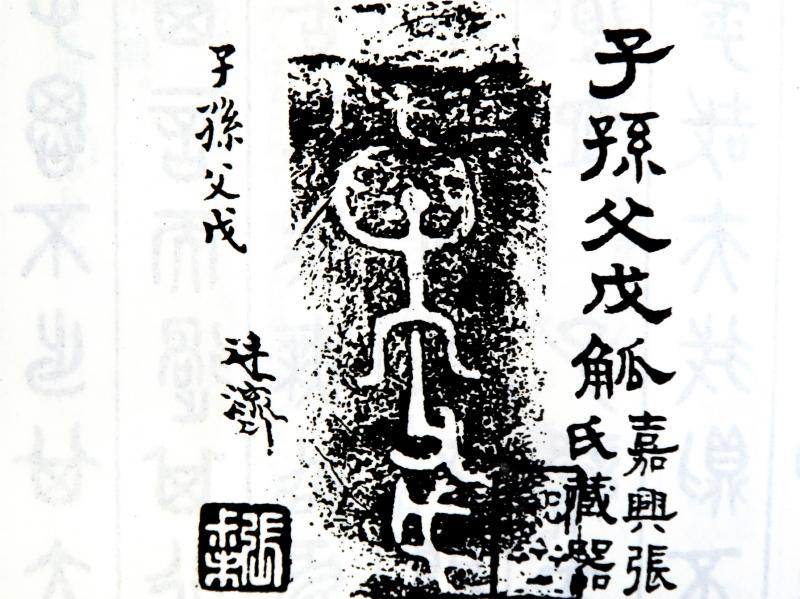 子孫父戊觚
嘉興張
氏藏器
子孫父戊
廷濟
張叔未